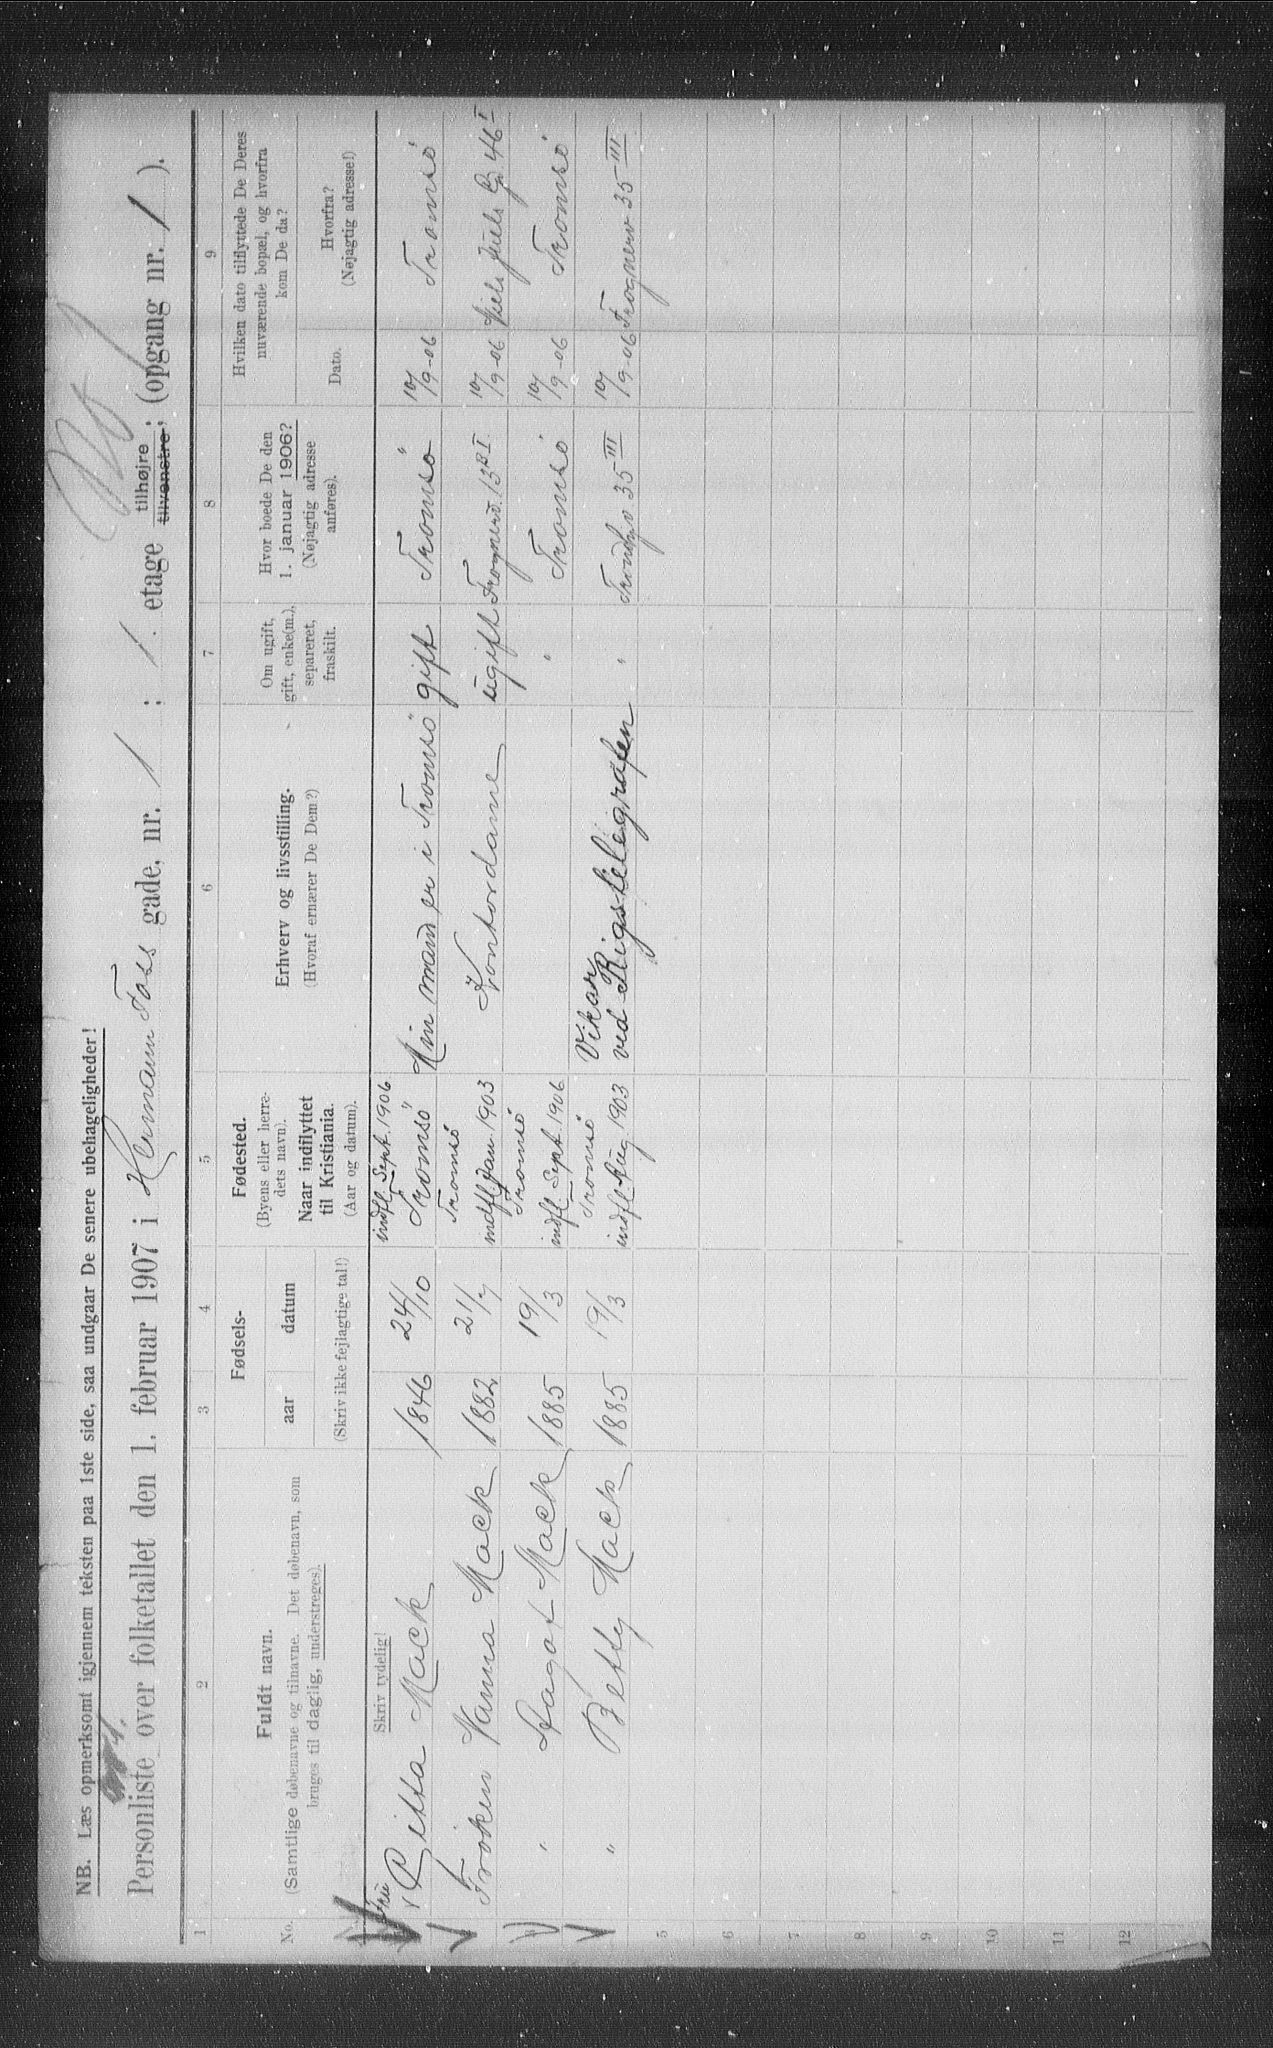 NB. Læs opmerksomt igjennem teksten paa 1ste side, saa undgaar De senere ubehageligheder!
Personliste over folketallet den 1. februar 1907 i Herman Foss gade, nr. 1 : 1. etage tilhøjre tilvenstre; (opgang nr. 1 ).
1 2 3 4 5 6 7 8 9
No.
Fuldt navn.
(Samtlige døbenavne og tilnavne. Det døbenavn, som
bruges til daglig, understreges).
Fødsels-
aar datum
(Skriv ikke fejlagtige tal!)
Fødested.
(Byens eller herre-
dets navn).
Naar indflyttet
til Kristiania.
(Aar og datum).
Erhverv og livsstilling.
(Hvoraf ernærer De Dem?)
Om ugift,
gift, enke(m.),
separeret,
fraskilt.
Hvor boede De den
1. januar 1906?
(Nøjagtig adresse
anføres).
Hvilken dato tilflyttede De Deres
nuværende bopæl, og hvorfra
kom De da?
Dato.
Hvorfra?
(Nøjagtig adresse!)
Skriv tydelig!
Fru
Gitta Mack 1846 24/10 indfl. Sept. 1906 Tromsö Min mand er i Tromsö gift Tromsö 10/9-06 Tromsö
Frøken Nanna Mack 1882 21/7 Tromsö indfl. Jan. 1903 Kontordame ugift Frognerv. 13 I 10/9-06 Niels Juels G. 46 I
" Dagot Mack 1885 19/3 Tromsö indfl. Sept. 1906 " Tromsö 10/9-06 Tromsö
" Betty Mack 1885 19/3 Tromsö indfl. Aug 1903 Vikar ved Rigstelegrafen " 35 III 10/9-06 Frognerv 35 III
5
6
7
8
9
10
11
12